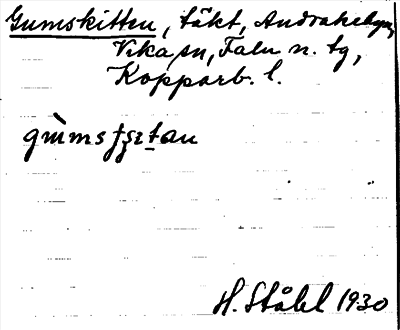 Gumskitten, täkt, Andrakebyn,
Vika sn, Falu n. tg,
Kopparb. l.
gɯ̀msʈʂɪtau
H. Ståhl 1930